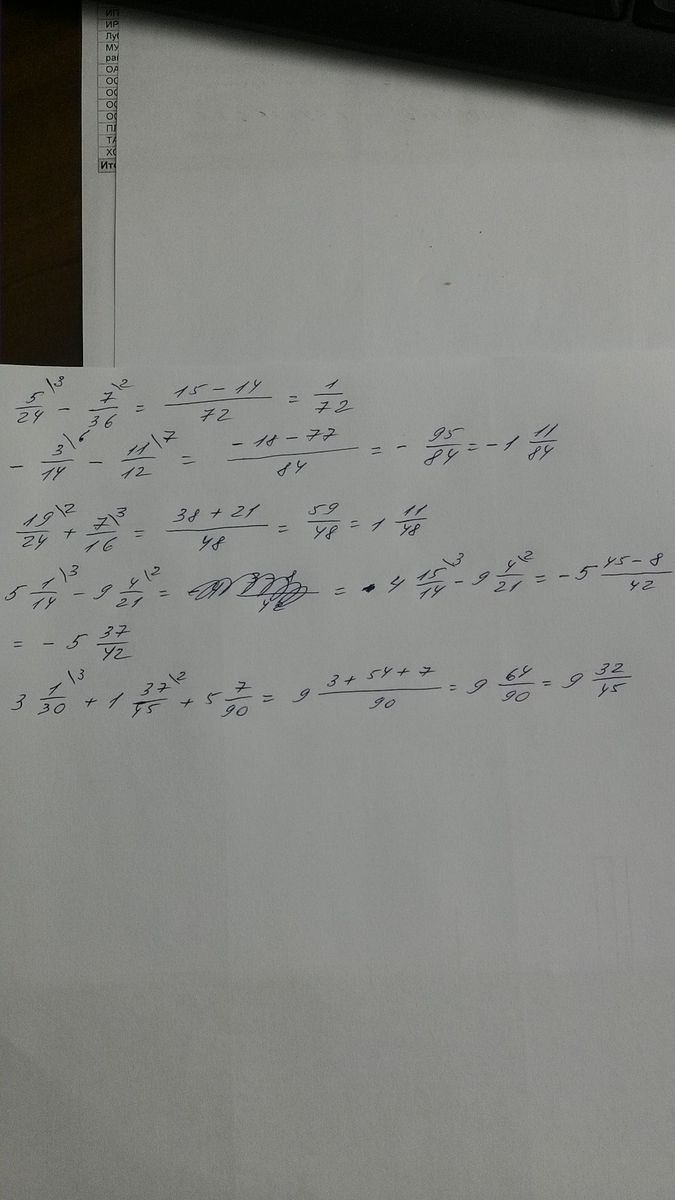 ИП
ИР
Луб
МУ
рай
ОА
ОС
ОС
ОС
ОС
ПЛ
ТА
ХО
Ито
5/24 \3 − 7/36 \2 = (15 − 14)/72 = 1/72
− 3/14 \6 − 11/12 \7 = (−18 − 77)/84 = − 95/84 = −1 11/84
19/24 \2 + 7/16 \3 = (38 + 21)/48 = 59/48 = 1 11/48
5 1/14 \3 − 9 4/21 \2 = = 4 15/14 \3 − 9 4/21 \2 = −5 (45 − 8)/42
= − 5 37/42
3 1/30 \3 + 1 37/45 \2 + 5 7/90 = 9 (3 + 54 + 7)/90 = 9 64/90 = 9 32/45